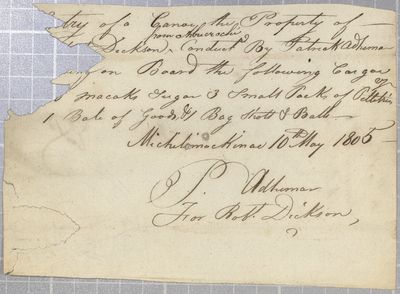 try of a Canoe the Property of
now Abucrochi
Dickson & Conduct By Patrick Adhemar
ing on Board the following Cargoe
macaks Sugar 3 Small Packs of Pelteries
1 Bale of Goods, 1 Bag Shott & Balls
Michilimackinac 10th May 1805
P. Adhemar
For Robt. Dickson,